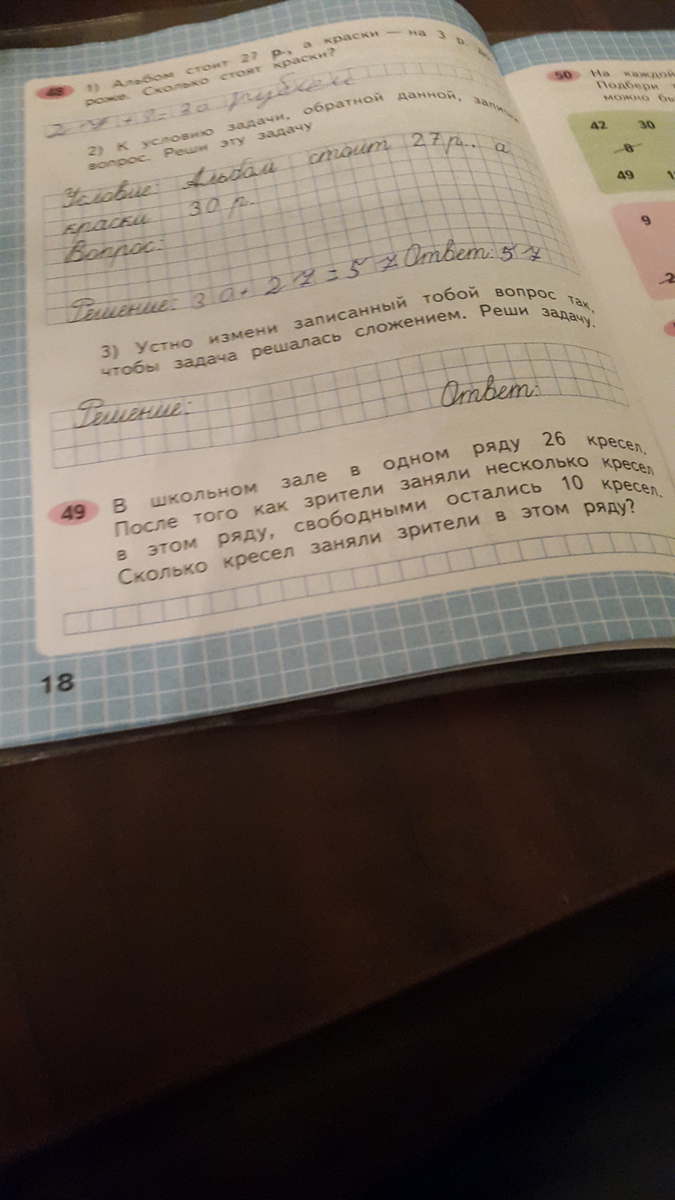 48 1) Альбом стоит 27 р., а краски — на 3 р.
роже. Сколько стоят краски?
27+3=30 рублей
2) К условию задачи, обратной данной,
вопрос. Реши эту задачу
Условие: Альбом стоит 27 р., а
краски 30 р.
Вопрос:
Решение: 30+27=57 Ответ: 57
3) Устно измени записанный тобой вопрос так,
чтобы задача решалась сложением. Реши задачу.
Решение: Ответ:
49 В школьном зале в одном ряду 26 кресел.
После того как зрители заняли несколько кресел
в этом ряду, свободными остались 10 кресел.
Сколько кресел заняли зрители в этом ряду?
18
50 На каждой
Подбери
можно
42 30
8
49
9